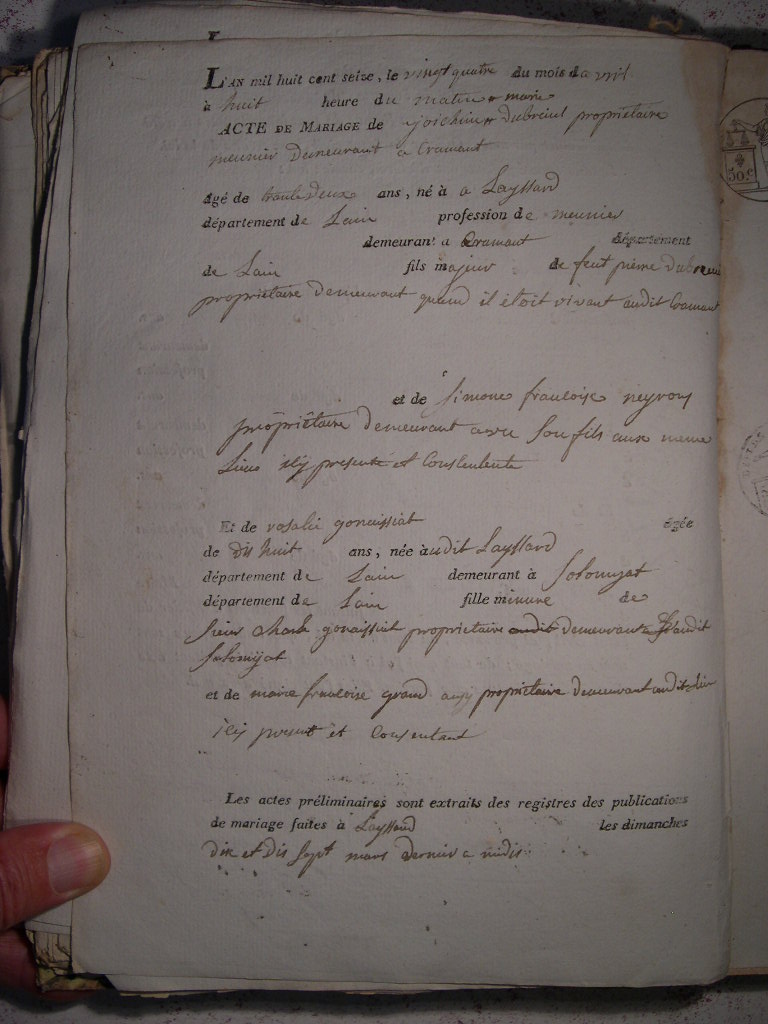 L'AN mil huit cent seize, le vingt quatre du mois da vril
à huit heure du matin marie
ACTE DE MARIAGE de joichim dubreuil propriétaire
meunier Demeurant a Cramant
âgé de trante deux ans, né à a Layssard
département de Lain profession de meunier
demeurant a Cramant département
de Lain fils majeur de feut pierre Dubreuil
propriétaire Demeurant quand il étoit vivant audit Cramant
et de Simone francoise neyrony
propriétaire Demeurant avec Son fils aux meme
Lieux icy presente et Consentente
Et de rosalie gonaissiat âgée
de Dis huit ans, née audit Layssard
département de Lain demeurant à Solomyat
département de Lain fille mineure de
sieur Charle gonaissiat propriétaire audit Demeurant audit
Solomiyat
et de marie francoise grand aussy propriétaire Demeurant audit lieu
icy present et Consentant
Les actes préliminaires sont extraits des registres des publications
de mariage faites à Layssard les dimanches
dix et Dis Sept mars Dernier a midis
50.c